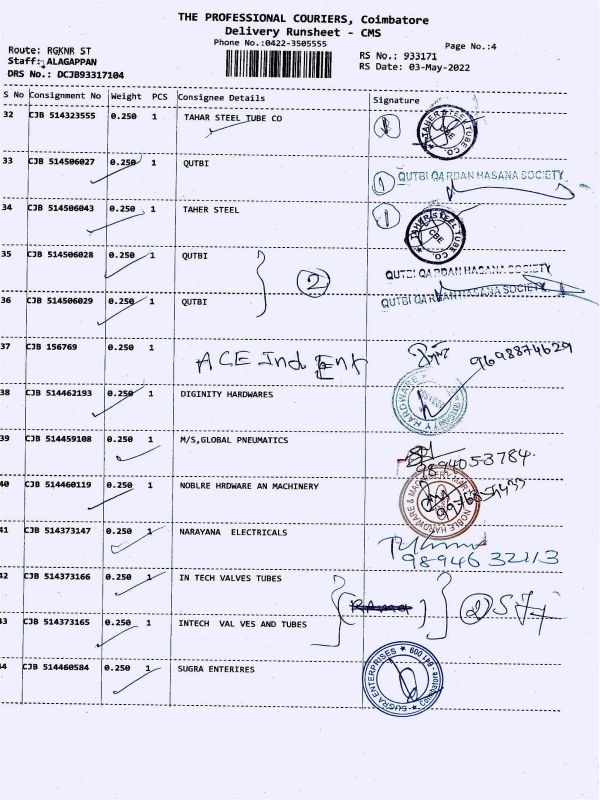 THE PROFESSIONAL COURIERS, Coimbatore
Delivery Runsheet - CMS
Phone No.:0422-3505555
Page No.:4
Route: RGKNR ST
Staff: ALAGAPPAN
DRS No.: DCJB93317104
RS No.: 933171
RS Date: 03-May-2022
S No Consignment No Weight PCS Consignee Details Signature
32 CJB 514323555 0.250 1 TAHAR STEEL TUBE CO TAHER STEEL TUBE CO. CBE
33 CJB 514506027 0.250 1 QUTBI 1 QUTBI QARDAN HASANA SOCIETY
34 CJB 514506043 0.250 1 TAHER STEEL 1 TAHER STEEL TUBE CO. CBE
35 CJB 514506028 0.250 1 QUTBI QUTBI QARDAN HASANA SOCIETY
2
36 CJB 514506029 0.250 1 QUTBI QUTBI QARDAN HASANA SOCIETY
37 CJB 156769 0.250 1 ACE Ind Ent 9698874629
38 CJB 514462193 0.250 1 DIGINITY HARDWARES HARDWARE
39 CJB 514459108 0.250 1 M/S,GLOBAL PNEUMATICS 9894053784.
40 CJB 514460119 0.250 1 NOBLRE HRDWARE AN MACHINERY NOBLE HARDWARE & MACHINERY MART
41 CJB 514373147 0.250 1 NARAYANA ELECTRICALS 98946 32113
42 CJB 514373166 0.250 1 IN TECH VALVES TUBES
2
43 CJB 514373165 0.250 1 INTECH VAL VES AND TUBES
44 CJB 514460584 0.250 1 SUGRA ENTERIRES SUGRA ENTERPRISES Coimbatore - 600 001